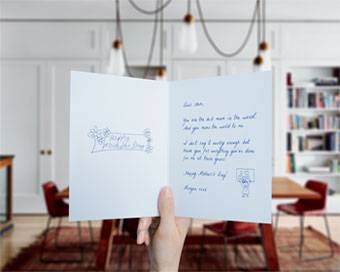 Happy
Mother's Day
Dear Mom,
You are the best mom in the world
and you mean the world to me.
I don't say it nearly enough but
thank you for everything you've done
for me all these years!
Happy Mother's Day!
Morgan xxxx